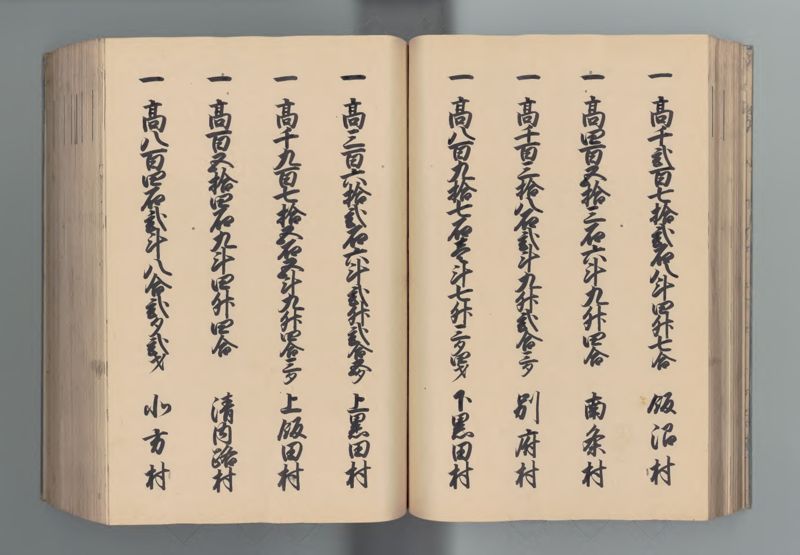 一 高千弐百七拾弐石八斗四升七合 飯沼村
一 高四百五拾三石六斗九升四合 南条村
一 高千百三拾八石弐斗九升弐合三夕 別府村
一 高八百九拾七石壱斗七升三夕四才 下黒田村
一 高三百六拾弐石六斗弐升弐合五夕 上黒田村
一 高千九百七拾五石五斗九升四合三夕 上飯田村
一 高百五拾四石九斗四升四合 清内路村
一 高八百四石弐斗八合弐夕弐才 小方村